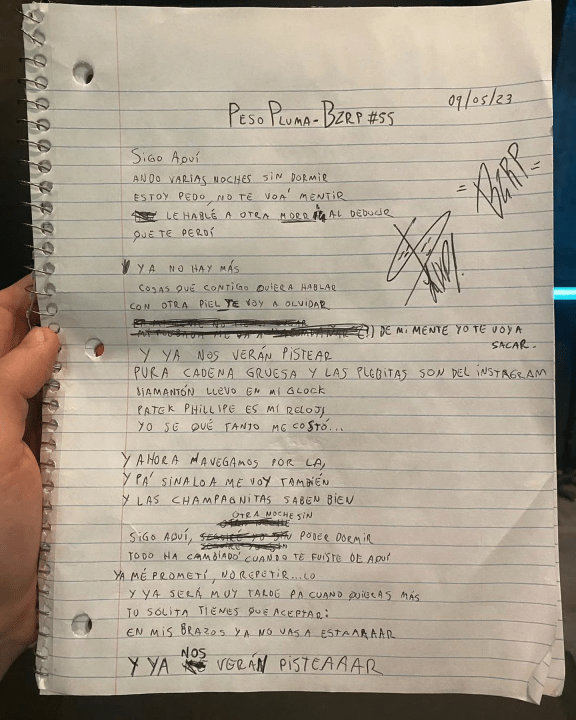 09/05/23
PESO PLUMA - BZRP #55
= BZRP =
SIGO AQUÍ
ANDO VARIAS NOCHES SIN DORMIR
ESTOY PEDO, NO TE VOA' MENTIR
LE HABLÉ A OTRA MORRA AL DEDUCIR
QUE TE PERDÍ
YA NO HAY MÁS
COSAS QUE CONTIGO QUIERA HABLAR
CON OTRA PIEL TE VOY A OLVIDAR
DE MI MENTE YO TE VOY A SACAR.
Y YA NOS VERÁN PISTEAR
PURA CADENA GRUESA Y LAS PLEBITAS SON DEL ÍNSTAGRAM
DIAMANTÓN LLEVO EN MI GLOCK
PATEK PHILLIPE ES MI RELOJ
YO SE QUÉ TANTO ME COSTÓ...
Y AHORA NAVEGAMOS POR LA,
Y PA' SINALOA ME VOY TAMBIÉN
Y LAS CHAMPAGNITAS SABEN BIEN
OTRA NOCHE SIN
SIGO AQUÍ, PODER DORMIR
TODO HA CAMBIADO CUANDO TE FUISTE DE AQUÍ
YA ME PROMETÍ, NO REPETIR...LO
Y YA SERÁ MUY TARDE PA CUANDO QUIERAS MÁS
TU SOLITA TIENES QUE ACEPTAR:
EN MIS BRAZOS YA NO VAS A ESTAARAAR
Y YA NOS VERÁN PISTEAAAR